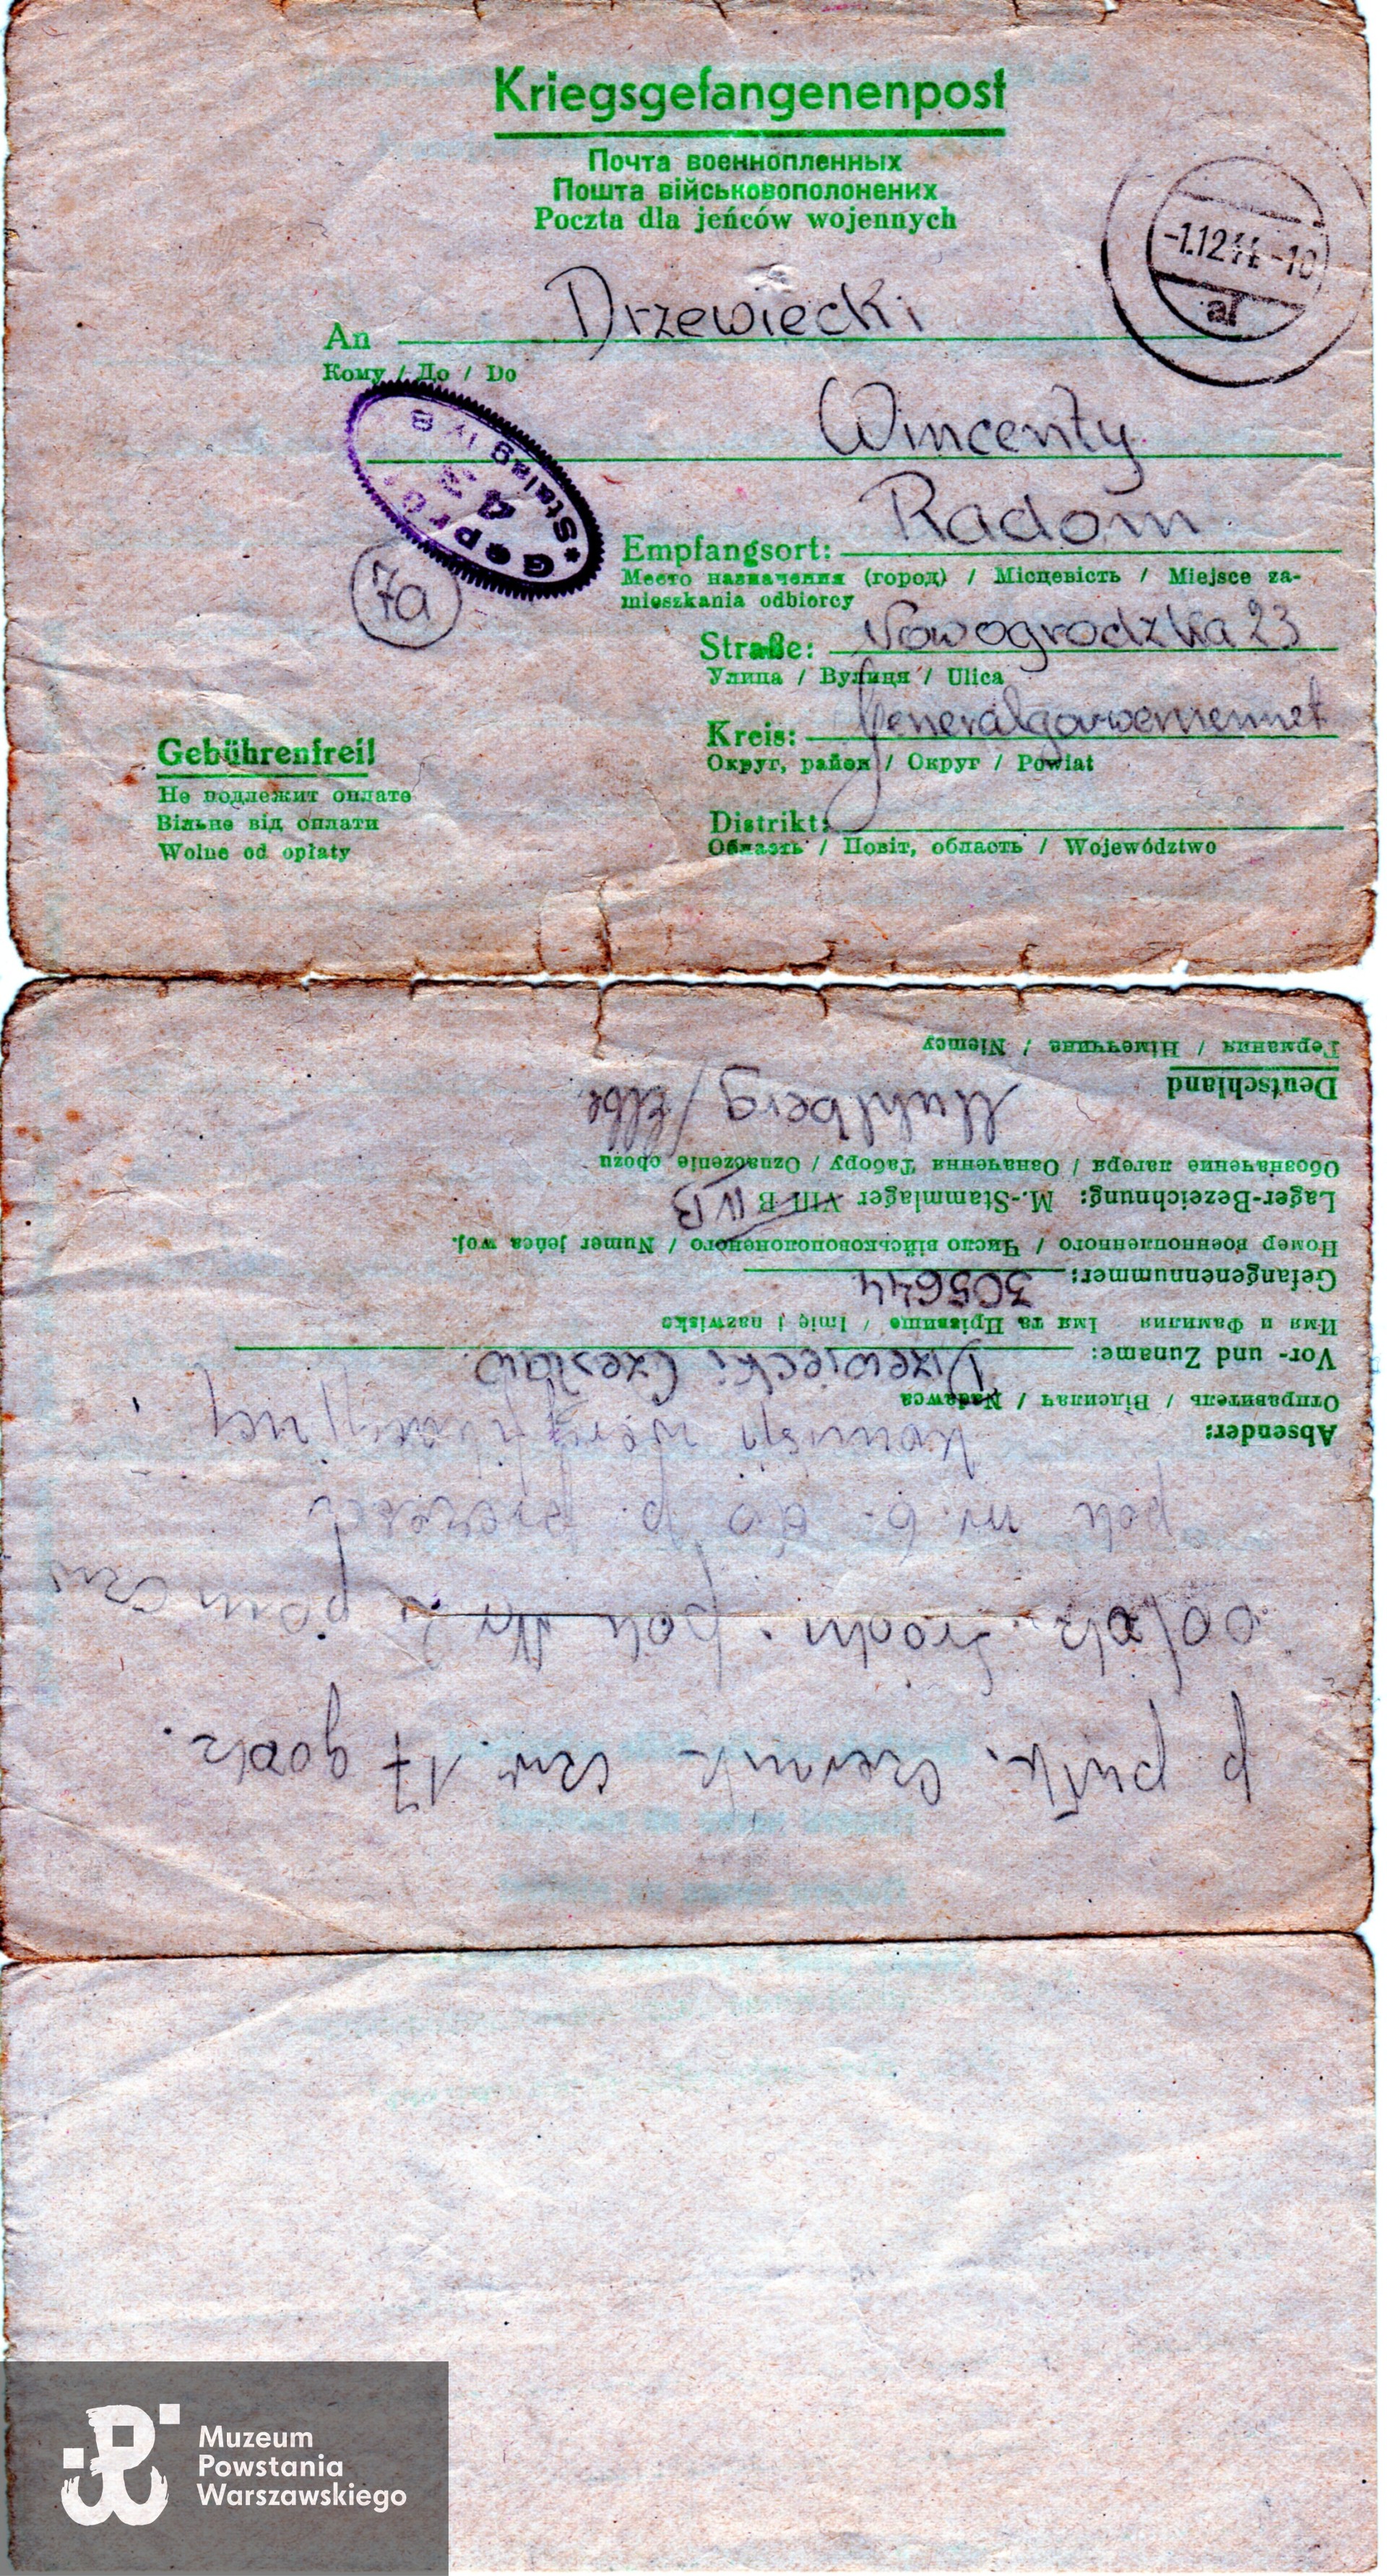 Kriegsgefangenenpost
Почта военнопленных
Пошта військовополонених
Poczta dla jeńców wojennych
-1.12.44.-10
a
An Drzewiecki
Кому / До / Do
Wincenty
Geprüft
43
Stalag IV B
7a
Empfangsort: Radom
Место назначения (город) / Місцевість / Miejsce za-
mieszkania odbiorcy
Straße: Nowogrodzka 23
Улица / Вулиця / Ulica
Kreis: Generalgouvernement
Округ, район / Округ / Powiat
Distrikt:
Область / Повіт, область / Województwo
Gebührenfrei!
Не подлежит оплате
Вільне від оплати
Wolne od opłaty
p pułk. czw. 17 godz.
pok
pok nr. 6.
Absender:
Отправитель / Відсилач / Nadawca
Vor- und Zuname: Drzewiecki Czesław.
Имя и Фамилия Імя та Прізвище / Imię i nazwisko
Gefangenennummer: 305644
Номер военнопленного / Число військовополоненого / Numer jeńca woj.
Lager-Bezeichnung: M.-Stammlager VIII B IV B
Обозначение лагеря / Означення Табору / Oznaczenie obozu
Muhlberg / Elbe
Deutschland
Германия / Німеччина / Niemcy
Muzeum
Powstania
Warszawskiego